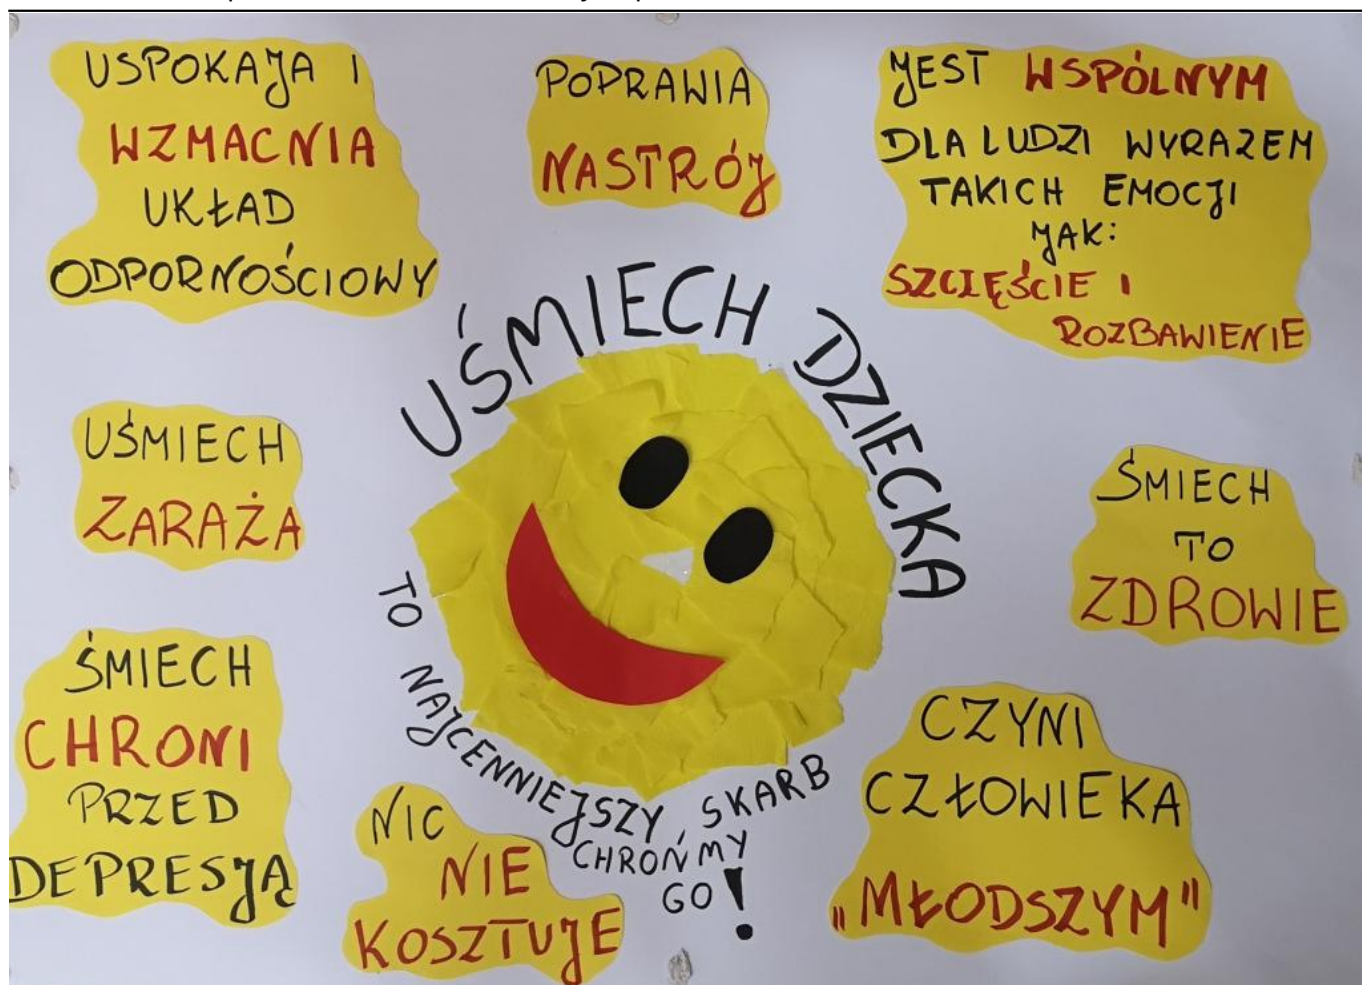 USPOKAJA I
WZMACNIA
UKŁAD
ODPORNOŚCIOWY
POPRAWIA
NASTRÓJ
JEST WSPÓLNYM
DLA LUDZI WYRAZEM
TAKICH EMOCJI
JAK:
SZCZĘŚCIE I
ROZBAWIENIE
UŚMIECH DZIECKA
TO NAJCENNIEJSZY SKARB
CHROŃMY
GO!
UŚMIECH
ZARAŻA
ŚMIECH
TO
ZDROWIE
ŚMIECH
CHRONI
PRZED
DEPRESJĄ
NIC
NIE
KOSZTUJE
CZYNI
CZŁOWIEKA
„MŁODSZYM"